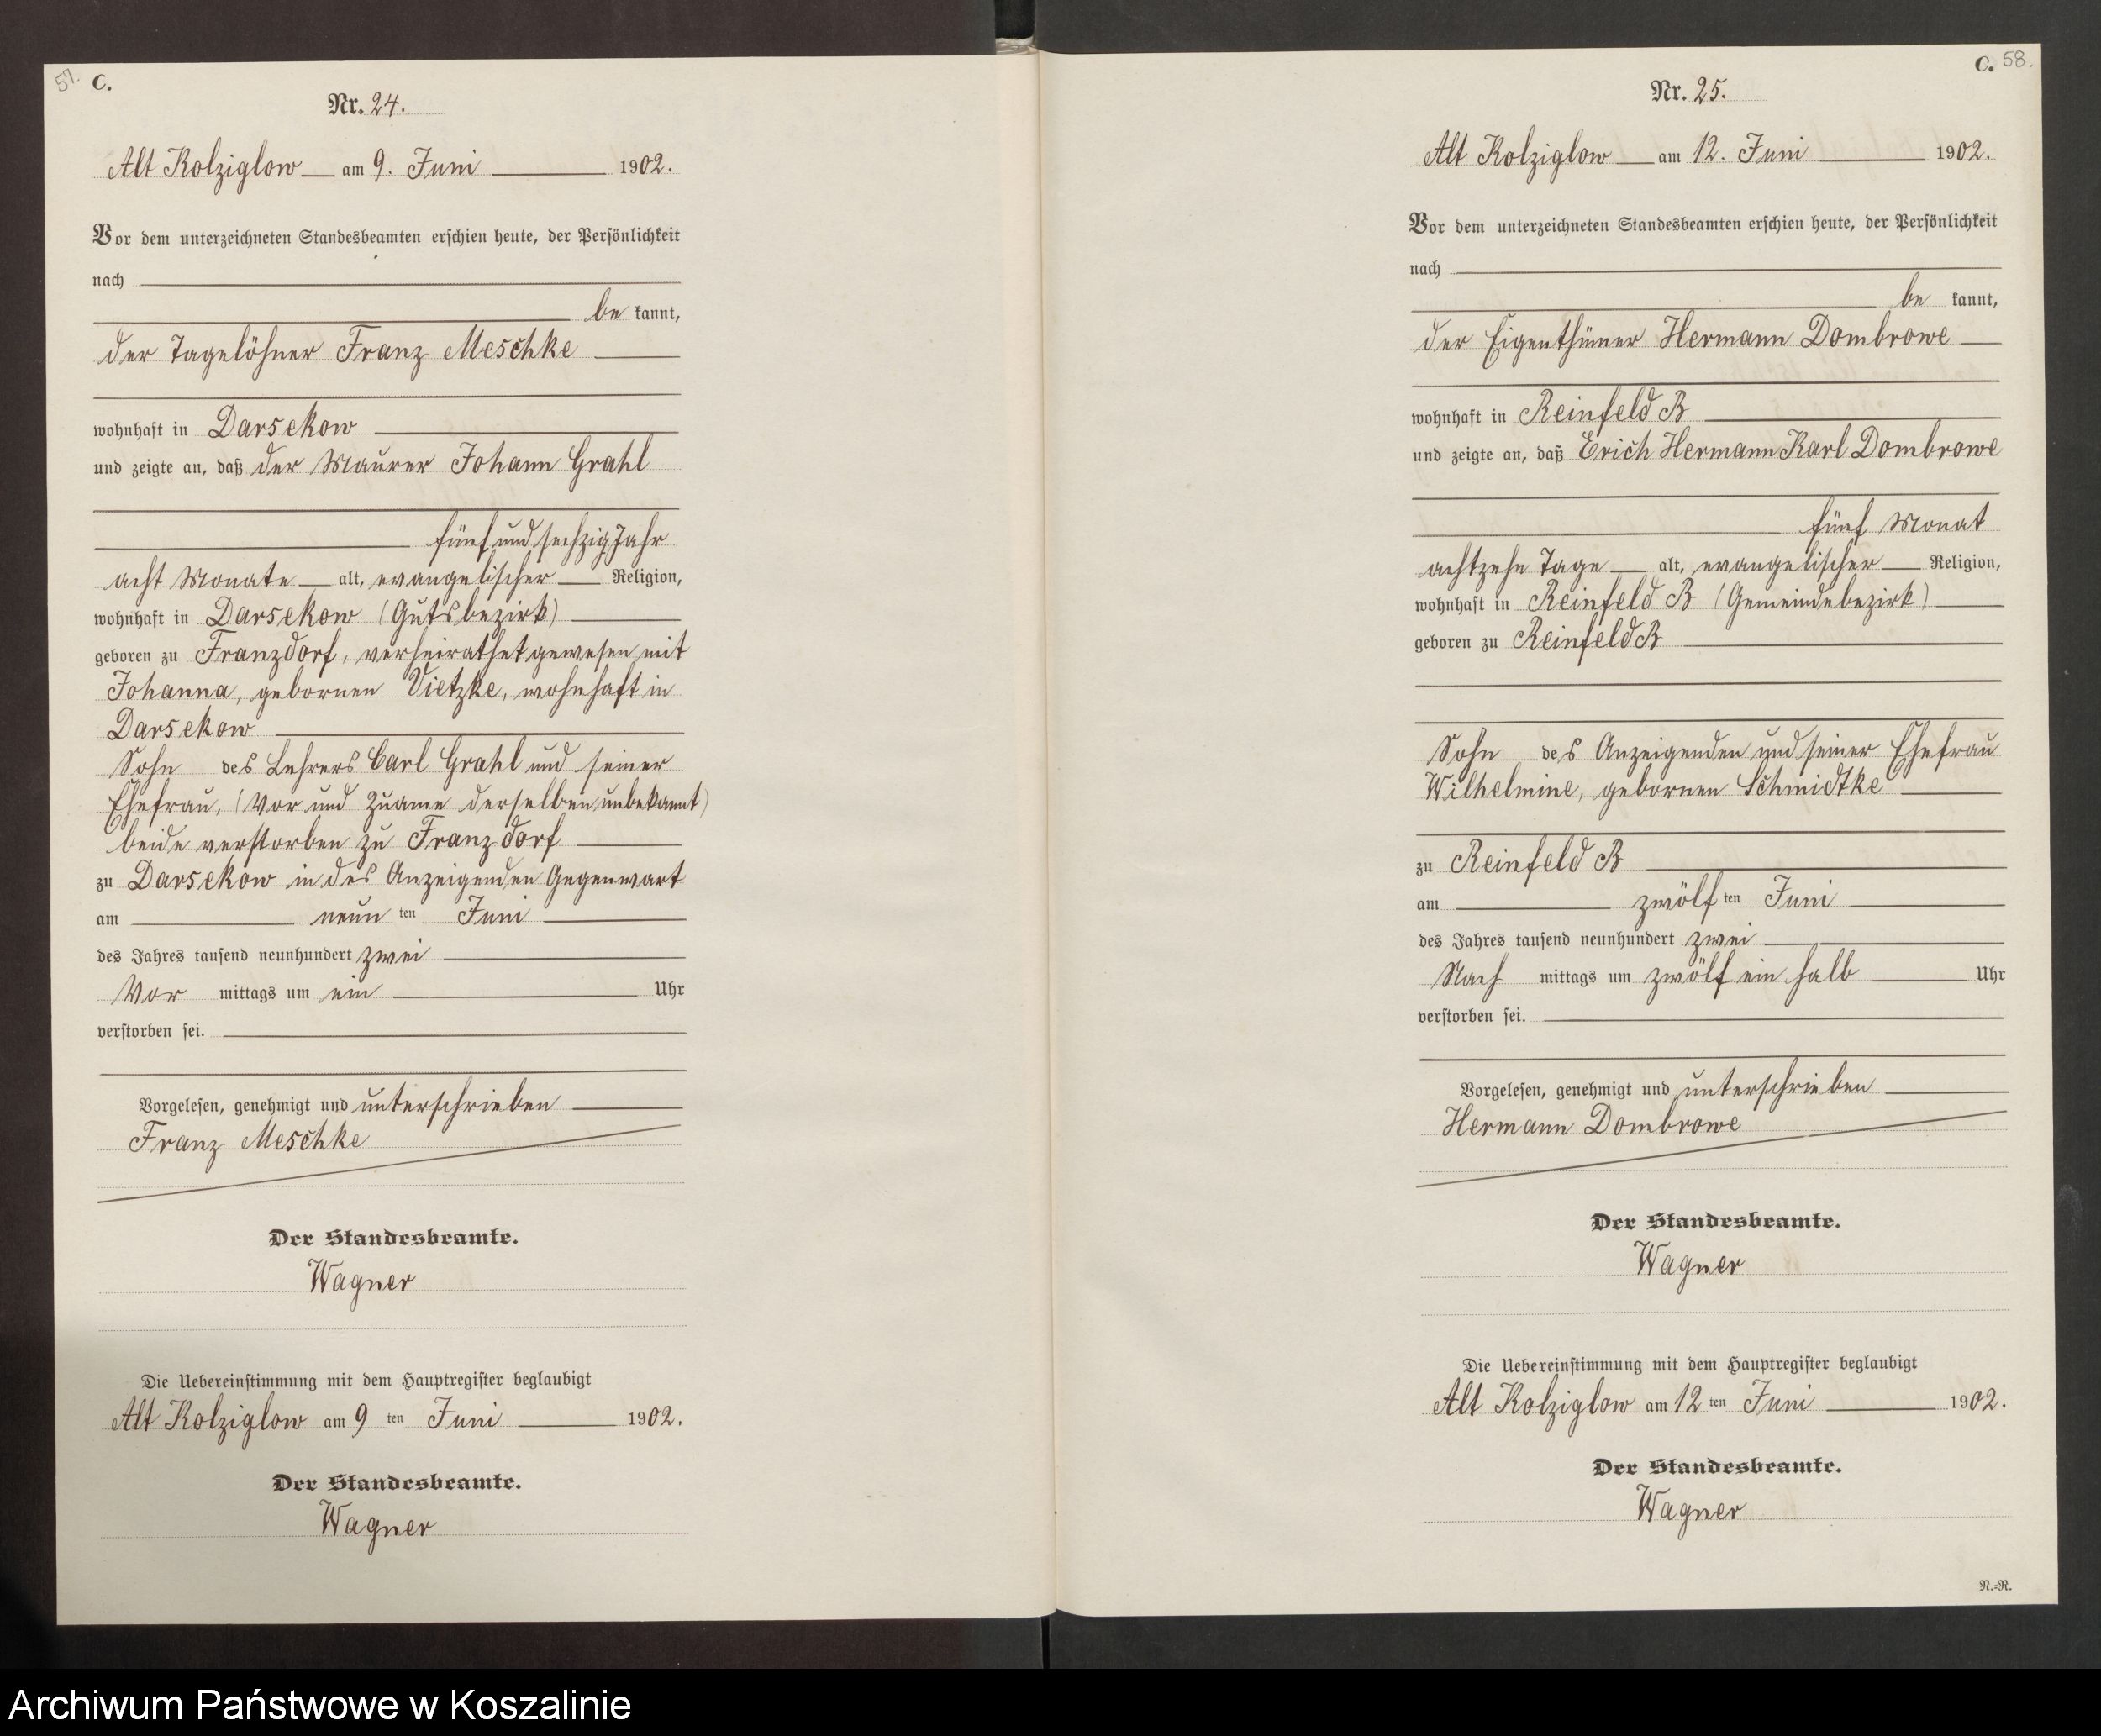 57. C.
Nr. 24.
Alt Kolziglow am 9. Juni 1902.
Vor dem unterzeichneten Standesbeamten erschien heute, der Persönlichkeit
nach
be kannt,
der Tagelöhner Franz Meschke
wohnhaft in Darsekow
und zeigte an, daß der Maurer Johann Grahl
fünf und sechzig Jahr
acht Monate alt, evangelischer Religion,
wohnhaft in Darsekow (Gutsbezirk)
geboren zu Franzdorf, verheirathet gewesen mit
Johanna, gebornen Vietzke, wohnhaft in
Darsekow
Sohn des Lehrers Carl Grahl und seiner
Ehefrau, (Vor und Zuame derselben unbekannt)
beide verstorben zu Franzdorf
zu Darsekow in des Anzeigenden Gegenwart
am neun ten Juni
des Jahres tausend neunhundert zwei
Vor mittags um ein Uhr
verstorben sei.
Vorgelesen, genehmigt und unterschrieben
Franz Meschke
Der Standesbeamte.
Wagner
Die Uebereinstimmung mit dem Hauptregister beglaubigt
Alt Kolziglow am 9 ten Juni 1902.
Der Standesbeamte.
Wagner
C. 58.
Nr. 25.
Alt Kolziglow am 12. Juni 1902.
Vor dem unterzeichneten Standesbeamten erschien heute, der Persönlichkeit
nach
be kannt,
der Eigenthümer Hermann Dombrowe
wohnhaft in Reinfeld B
und zeigte an, daß Erich Hermann Karl Dombrowe
fünf Monat
achtzehn Tage alt, evangelischer Religion,
wohnhaft in Reinfeld B (Gemeindebezirk)
geboren zu Reinfeld B
Sohn des Anzeigenden und seiner Ehefrau
Wilhelmine, gebornen Schmidtke
zu Reinfeld B
am zwölf ten Juni
des Jahres tausend neunhundert zwei
Nach mittags um zwölf ein halb Uhr
verstorben sei.
Vorgelesen, genehmigt und unterschrieben
Hermann Dombrowe
Der Standesbeamte.
Wagner
Die Uebereinstimmung mit dem Hauptregister beglaubigt
Alt Kolziglow am 12 ten Juni 1902.
Der Standesbeamte.
Wagner
N.=R.
Archiwum Państwowe w Koszalinie